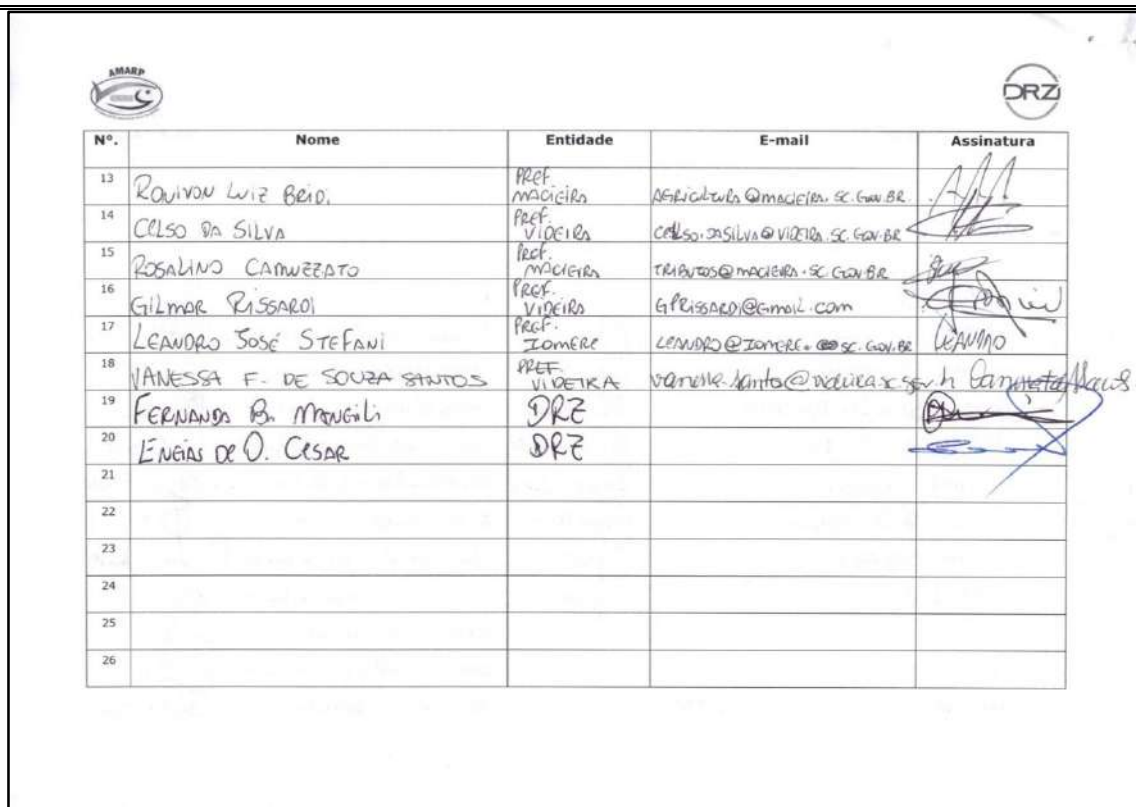 AMARP
DRZ
Nº. Nome Entidade E-mail Assinatura
13 RONIVON LUIZ BRIDI PREF. MACIEIRA AGRICULTURA@MACIEIRA.SC.GOV.BR
14 CELSO DA SILVA PREF. VIDEIRA CELSO.DASILVA@VIDEIRA.SC.GOV.BR
15 ROSALINO CAMUZZATO PREF. MACIEIRA TRIBUTOS@MACIEIRA.SC.GOV.BR
16 GILMAR RISSARDI PREF. VIDEIRA GPRISSARDI@GMAIL.COM
17 LEANDRO JOSÉ STEFANI PREF. IOMERE LEANDRO@IOMERE.SC.GOV.BR LEANDRO
18 VANESSA F. DE SOUZA SANTOS PREF. VIDEIRA
19 FERNANDA B. MANGILI DRZ
20 ENÉIAS DE O. CESAR DRZ
21
22
23
24
25
26